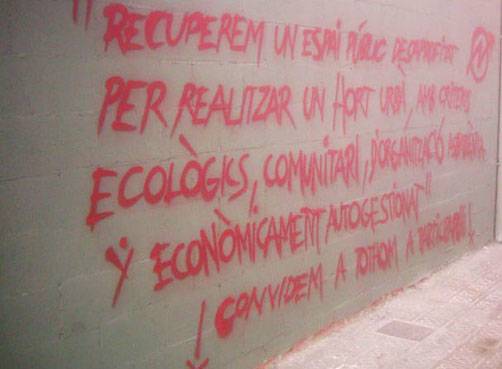 "RECUPEREM UN ESPAI PÚBLIC DESAPROFITAT
PER REALITZAR UN HORT URBÀ, AMB CRITERIS
ECOLÒGICS, COMUNITARI, D'ORGANITZACIÓ
Y ECONÒMICAMENT AUTOGESTIONAT"
¡ CONVIDEM A TOTHOM A PARTICIPAR !